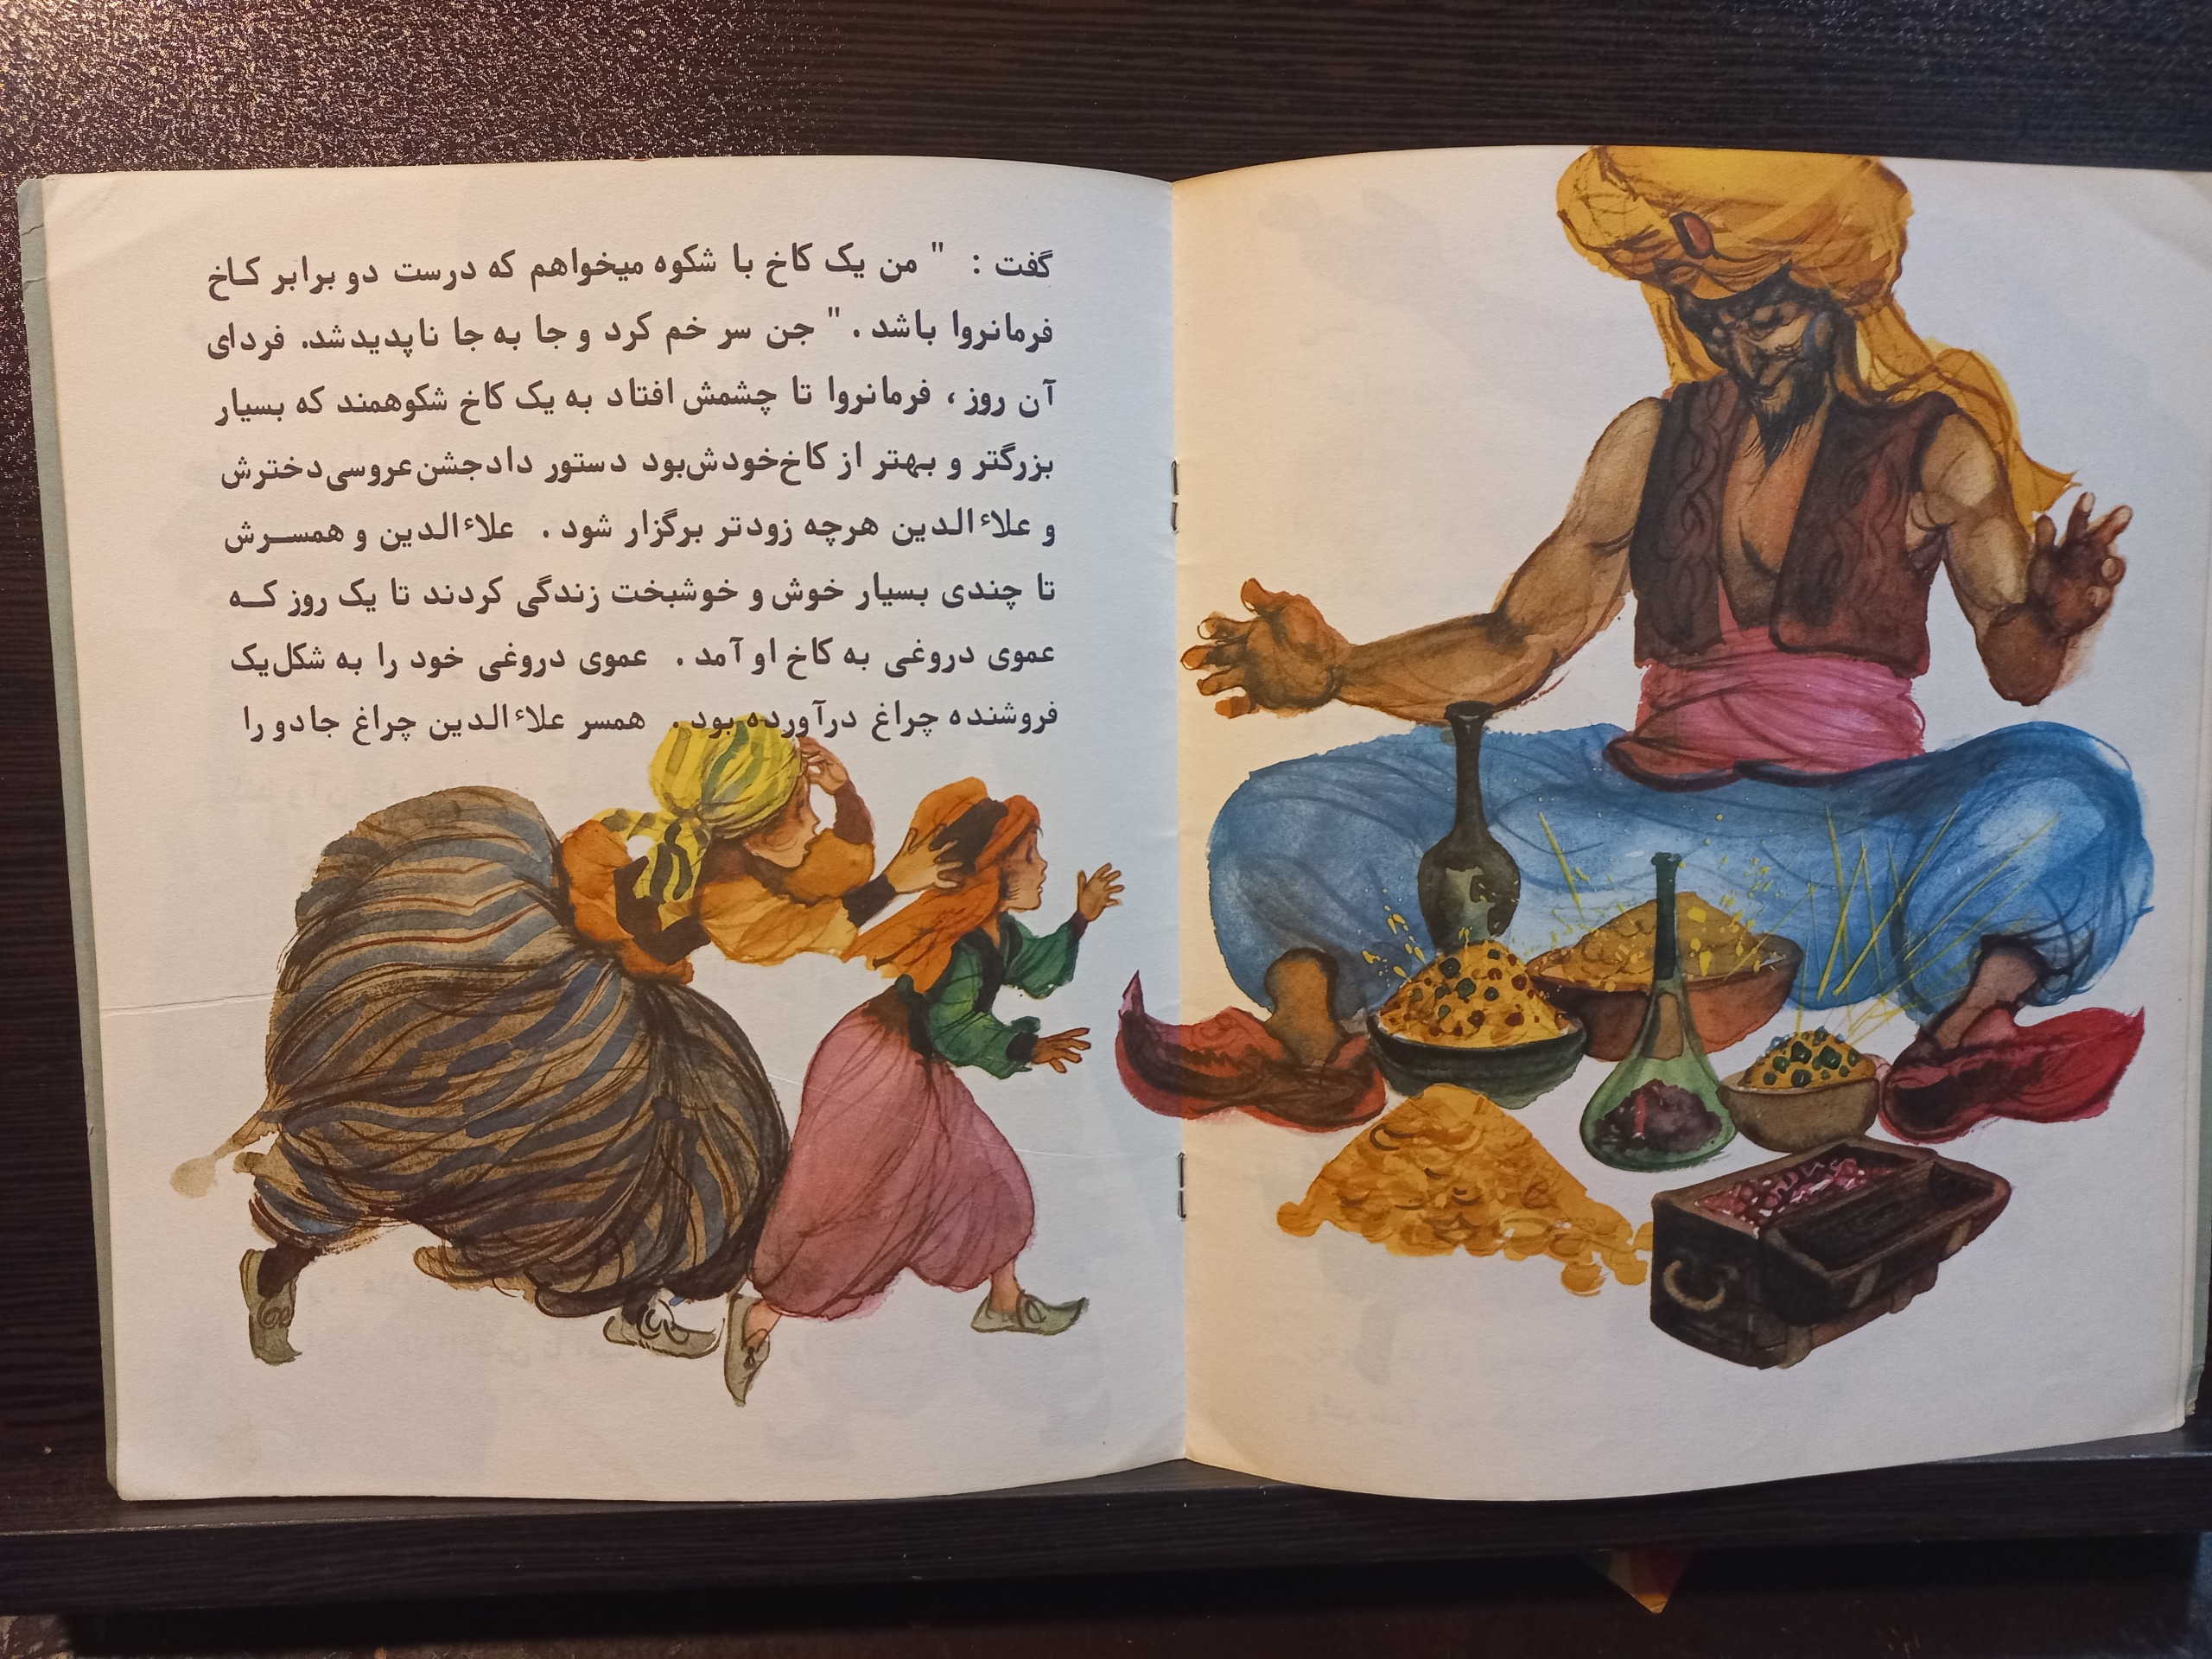 گفت : " من یک کاخ با شکوه میخواهم که درست دو برابر کاخ
فرمانروا باشد . " جن سر خم کرد و جا به جا ناپدید شد. فردای
آن روز ، فرمانروا تا چشمش افتاد به یک کاخ شکوهمند که بسیار
بزرگتر و بهتر از کاخ خودش بود دستور داد جشن عروسی دخترش
و علاءالدین هرچه زودتر برگزار شود . علاءالدین و همسرش
تا چندی بسیار خوش و خوشبخت زندگی کردند تا یک روز که
عموی دروغی به کاخ او آمد . عموی دروغی خود را به شکل یک
فروشنده چراغ درآورده بود . همسر علاءالدین چراغ جادو را